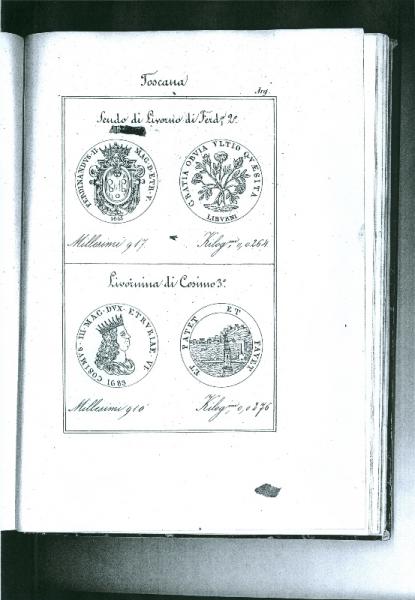 Toscana
Arg.
Scudo di Livorno di Ferd.º 2º
FERDINANDVS · II · MAG · D · ETR · V ·
1665
GRATIA OBVIA VLTIO QVÆSITA
LIBVRNI
Millesimi 917. Kilog.mi 0,0264
Livornina di Cosimo 3º
COSIMVS · III · MAG · DVX · ETRVRIAE · VI ·
1683
ET PATET ET FAVET
Millesimi 910 Kilog.mi 0,0276